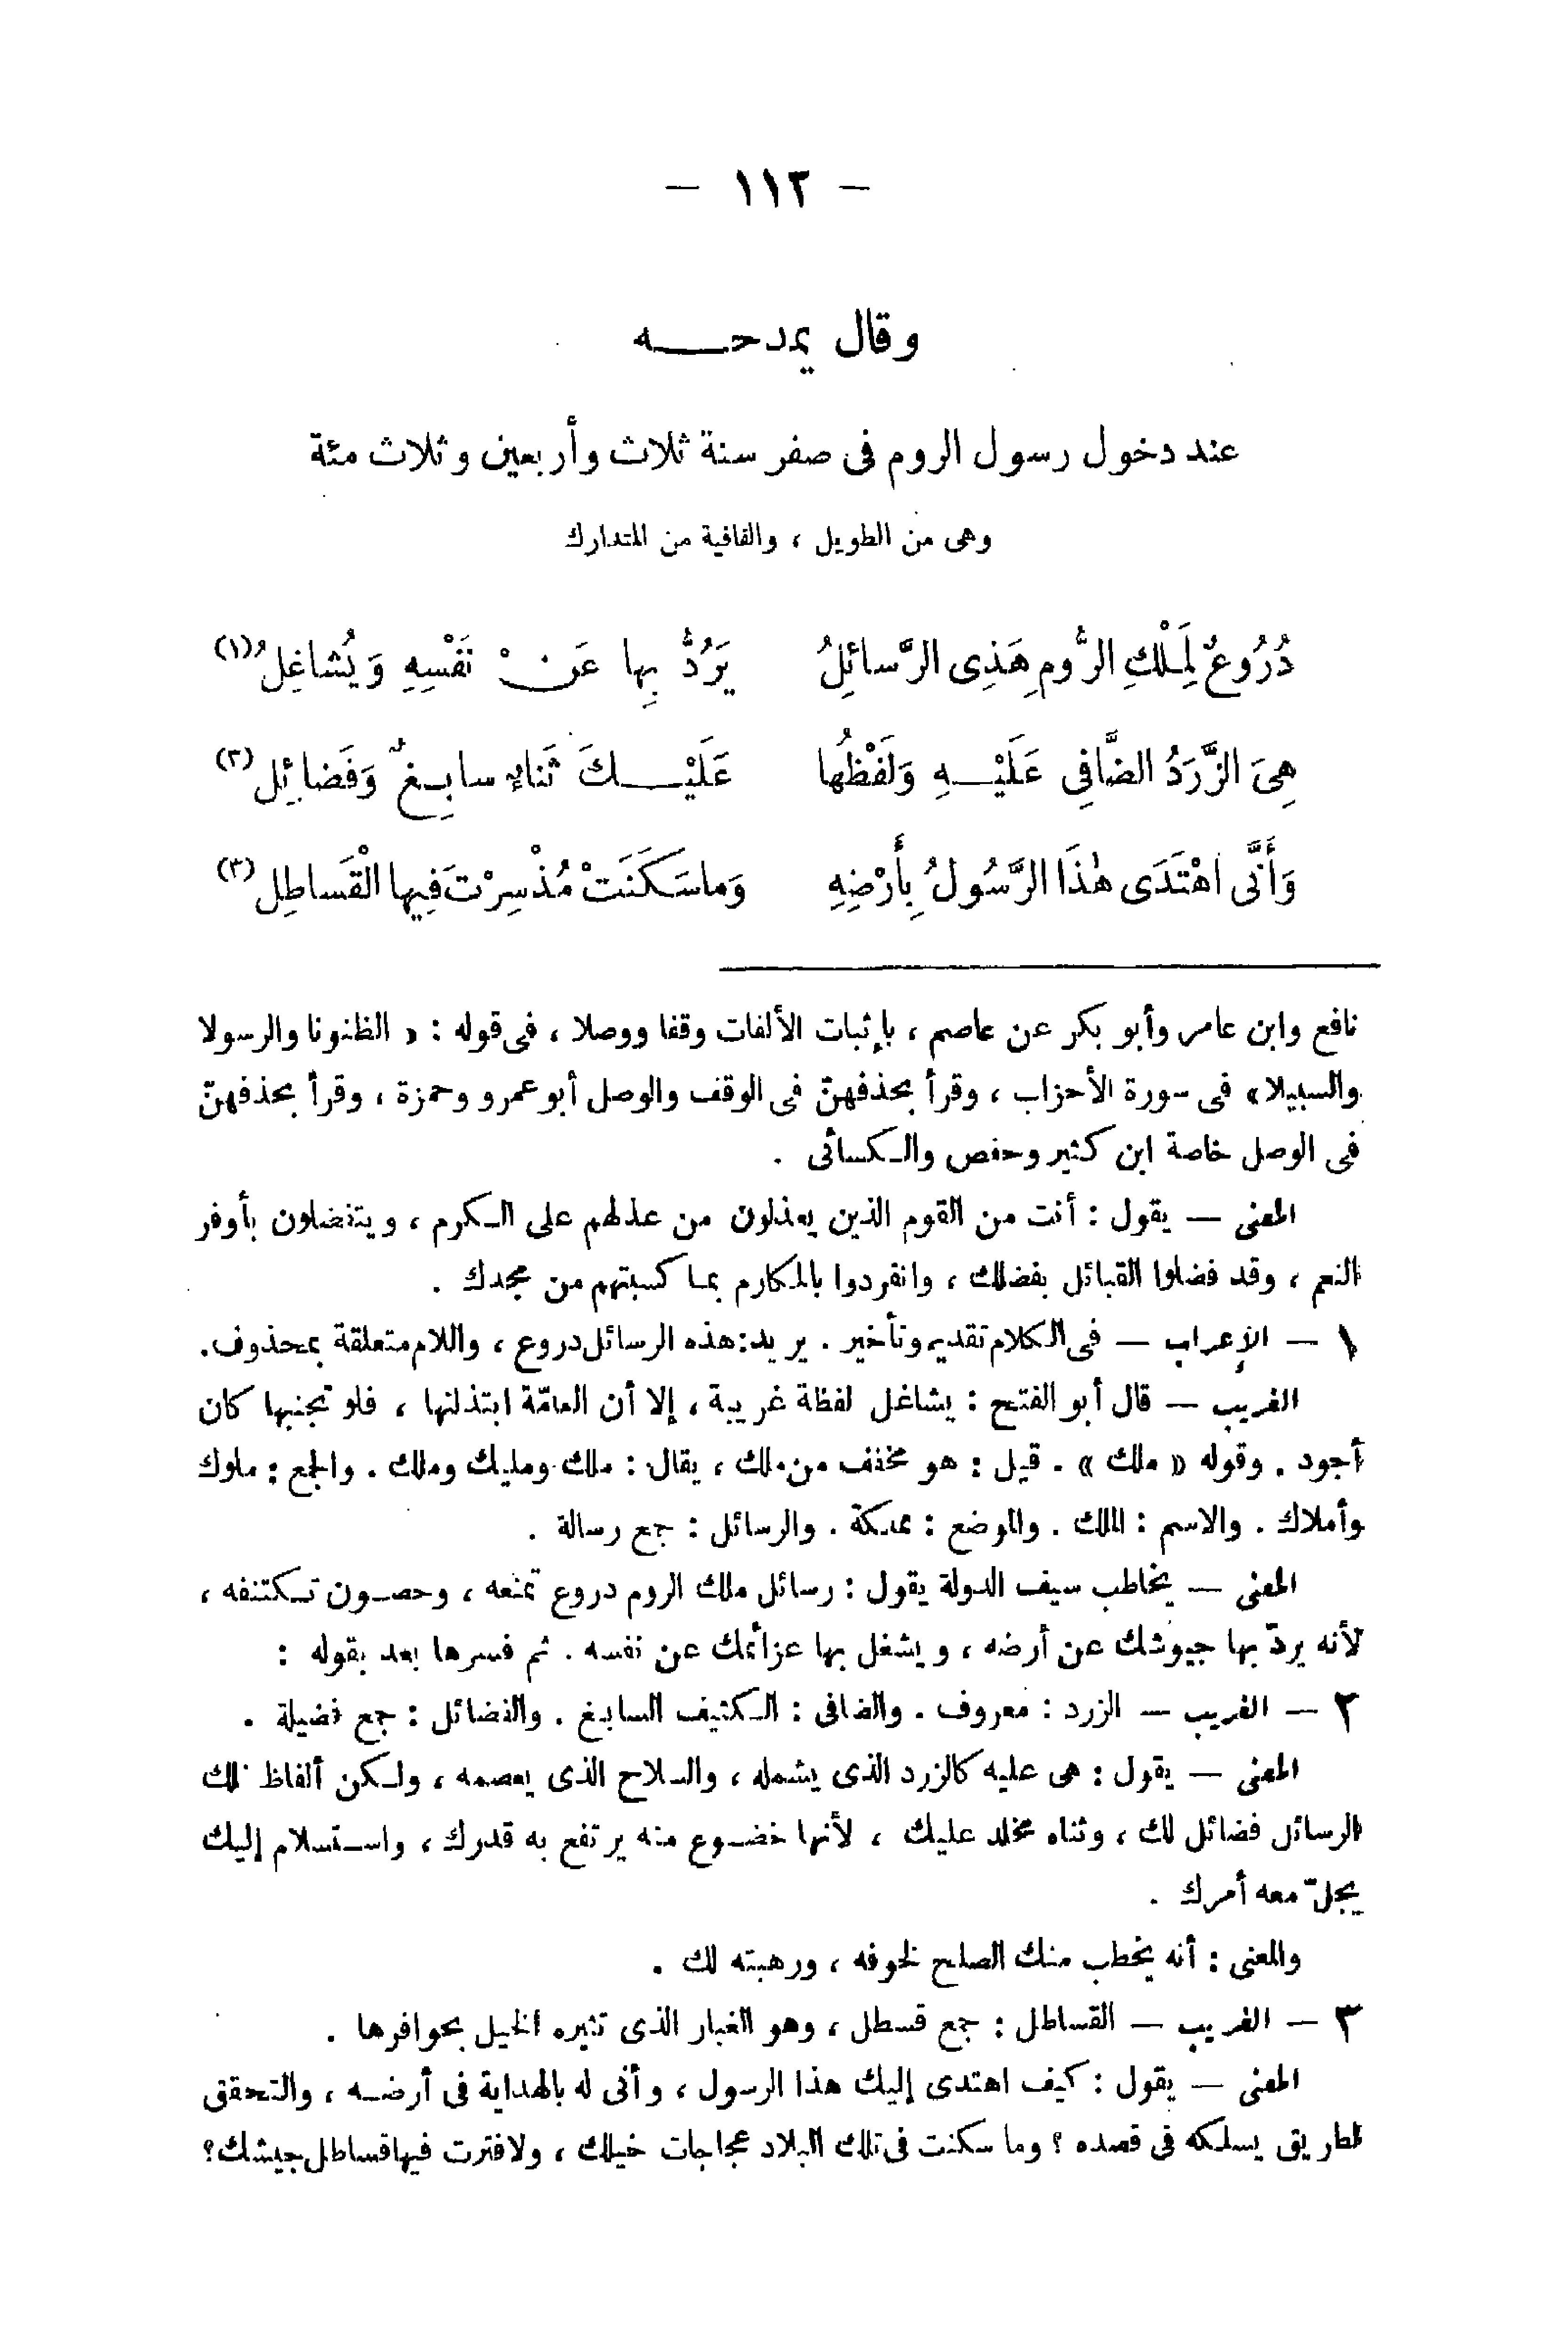 — ١١٢ —
وقال يمدحه
عند دخول رسول الروم فى صفر سنة ثلاث وأربعين وثلاث مئة
وهى من الطويل ، والقافية من المتدارك
دُرُوعٌ لِمَلْكِ الرُّومِ هَذِى الرَّسائلُ يَرُدُّ بِها عَنْ نَفْسِهِ وَيُشاغِلُ (١)
هِىَ الزَّرَدُ الضَّافِى عَلَيْهِ وَلَفْظُها عَلَيْكَ ثَناءٌ سابِغٌ وَفَضائِل (٢)
وَأَنَّى اهْتَدَى هٰذَا الرَّسُولُ بِأَرْضِهِ وَما سَكَنَتْ مُذْ سِرْتَ فِيها الْقَساطِل (٣)
نافع وابن عامر وأبو بكر عن عاصم ، بإثبات الألفات وقفا ووصلا ، فى قوله : « الظنونا والرسولا
والسبيلا » فى سورة الأحزاب ، وقرأ بحذفهنّ فى الوقف والوصل أبو عمرو وحمزة ، وقرأ بحذفهنّ
فى الوصل خاصة ابن كثير وحفص والكسائى .
المعنى — يقول : أنت من القوم الذين يعذلون من عذلهم على الكرم ، ويتفضلون بأوفر
النعم ، وقد فضلوا القبائل بفضلك ، وانفردوا بالمكارم بما كسبتهم من مجدك .
١ — الإعراب — فى الكلام تقديم وتأخير . يريد : هذه الرسائل دروع ، واللام متعلقة بمحذوف .
الغريب — قال أبو الفتح : يشاغل لفظة غريبة ، إلا أن العامّة ابتذلتها ، فلو تجنبها كان
أجود . وقوله « ملك » . قيل : هو مخفف من ملك ، يقال : ملك ومليك وملك . والجمع : ملوك
وأملاك . والاسم : الملك . والموضع : مملكة . والرسائل : جمع رسالة .
المعنى — يخاطب سيف الدولة يقول : رسائل ملك الروم دروع تمنعه ، وحصون تكتنفه ،
لأنه يردّ بها جيوشك عن أرضه ، ويشغل بها عزائمك عن نفسه . ثم فسرها بعد بقوله :
٢ — الغريب — الزرد : معروف . والضافى : الكثيف السابغ . والفضائل : جمع فضيلة .
المعنى — يقول : هى عليه كالزرد الذى يشمله ، والسلاح الذى يعصمه ، ولكن ألفاظ تلك
الرسائل فضائل لك ، وثناء مخلد عليك ، لأنها خضوع منه يرتفع به قدرك ، واستسلام إليك
يجلّ معه أمرك .
والمعنى : أنه يخطب منك الصلح لخوفه ، ورهبته لك .
٣ — الغريب — القساطل : جمع قسطل ، وهو الغبار الذى تثيره الخيل بحوافرها .
المعنى — يقول : كيف اهتدى إليك هذا الرسول ، وأنى له بالهداية فى أرضه ، والتحقق
لطريق يسلكه فى قصده ؟ وما سكنت فى تلك البلاد عجاجات خيلك ، ولا فترت فيها قساطل جيشك ؟